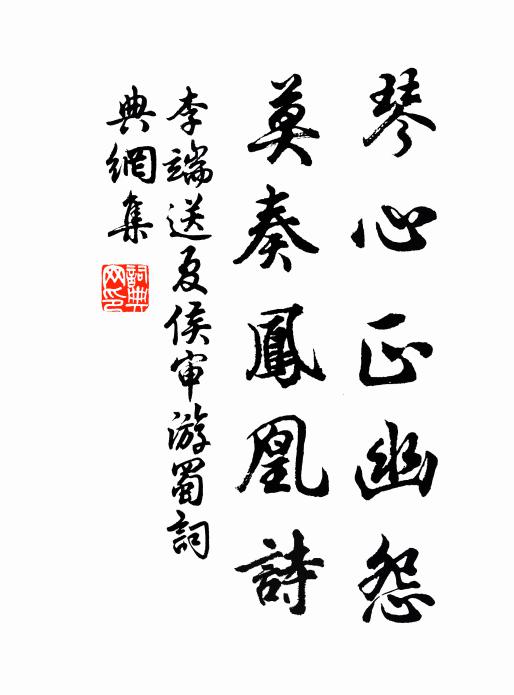 琴心正幽怨
莫奏鳳凰詩
李端送夏侯审游蜀詞
典網集
詞典
网印